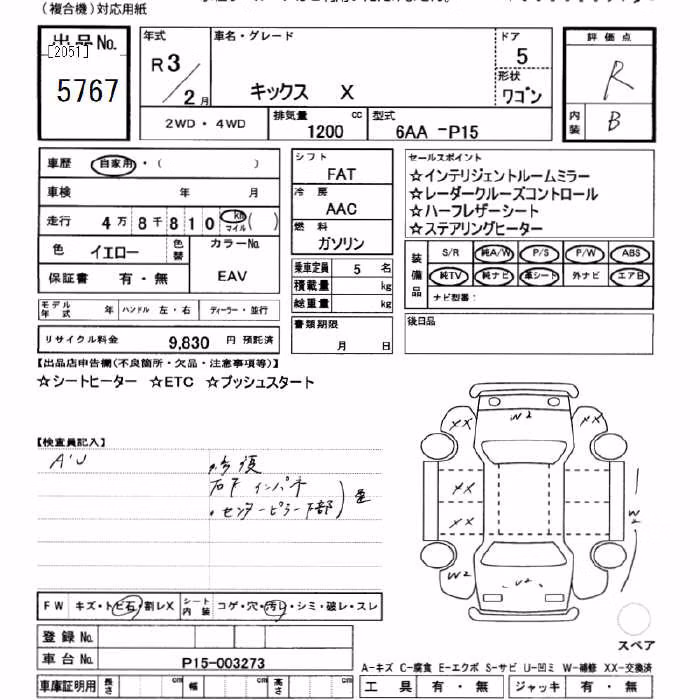 (複合機)対応用紙
出品No.
[2051]
5767
年式
R3/2月
車名・グレード
キックス X
ドア
5
形状
ワゴン
評価点
R
内装
B
2WD・4WD
排気量
1200 cc
型式
6AA -P15
車歴
自家用・( )
車検 年 月
走行 4万8千810 km マイル( )
色 イエロー 色替
カラーNo.
EAV
保証書 有・無
モデル年式 年 ハンドル 左・右 ディーラー・並行
リサイクル料金 9,830 円 預託済
シフト
FAT
冷房
AAC
燃料
ガソリン
乗車定員 5 名
積載量 kg
総重量 kg
書類期限
月 日
セールスポイント
☆インテリジェントルームミラー
☆レーダークルーズコントロール
☆ハーフレザーシート
☆ステアリングヒーター
装備品
S/R 純A/W P/S P/W ABS
純TV 純ナビ 革シート 外ナビ エアB
ナビ型番:
後日品
【出品店申告欄(不良箇所・欠品・注意事項等)】
☆シートヒーター ☆ETC ☆プッシュスタート
【検査員記入】
A'U
修復
右F インパネ
・センターピラー下部
XX W2 XX
XX
XX
W2
W2 W2
FW キズ・トビ石・割レX
シート内装 コゲ・穴・汚レ・シミ・破レ・スレ
登録No.
車台No. P15-003273
車庫証明用 長さ cm 幅 cm 高さ cm
スペア
A-キズ C-腐食 E-エクボ S-サビ U-凹ミ W-補修 XX-交換済
工具 有・無 ジャッキ 有・無